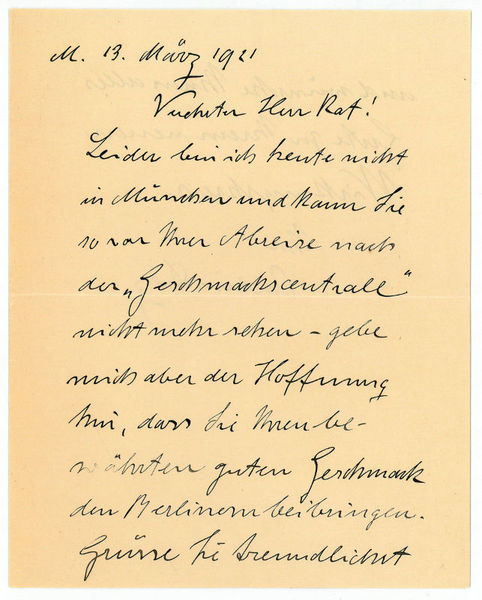 M. 13. März 1921
Verehrter Herr Rat!
Leider bin ich heute nicht
in München und kann Sie
so vor Ihrer Abreise nach
der „Geschmackscentrale“
nicht mehr sehen – gebe
mich aber der Hoffnung
hin, dass Sie Ihren be-
währten guten Geschmack
den Berlinern beibringen.
Grüsse Sie freundlichst